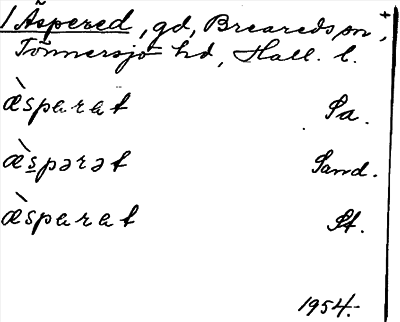 1 Äspered, gd, Breareds sn,
Tönnersjö hd, Hall. l.
æ̀sparat Sa.
æ̀spərət Sand.
æ̀sparat St.
1954.-